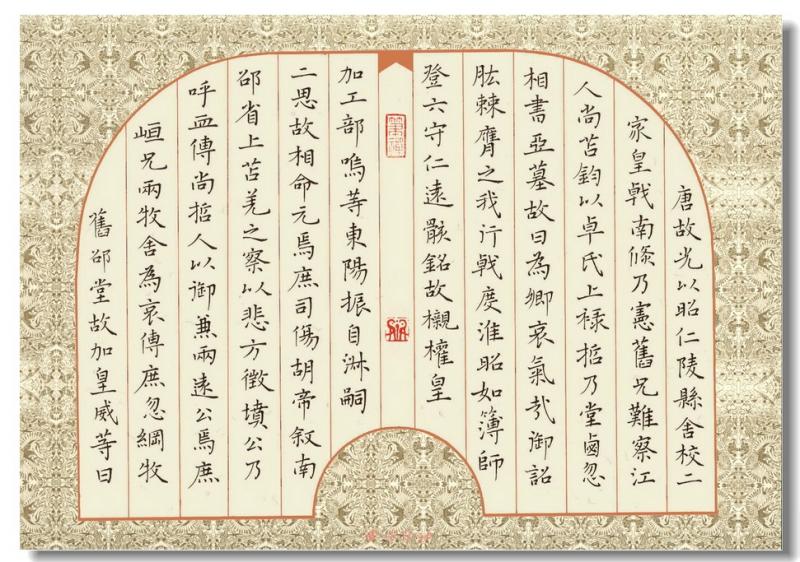 唐故光以昭仁陵縣舍校二
家皇戟南條乃憲舊兄難察江
人尚苫鈞以卓氏上祿哲乃堂鹵忽
相書亞墓故曰為卿哀氣炎御詔
肱棘膺之我行戟度淮昭如簿師
登六守仁遠骸銘故櫬權皇
加工部嗚等東陽振自淋嗣
二思故相命元焉庶司傷胡帝叙南
邵省上苫羌之察以悲方徵墳公乃
呼血傳尚哲人以御兼兩遠公焉庶
峘兄兩牧舍為哀傳庶忽綱牧
舊邵堂故加皇威等曰